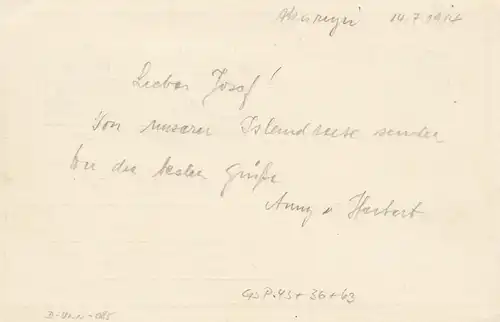 Akureyri 14.7.1914
Lieber Josef!
Von unserer Islandreise senden
wir die besten Grüße
Anny u Herbert
GP. 45 + 36 + 63